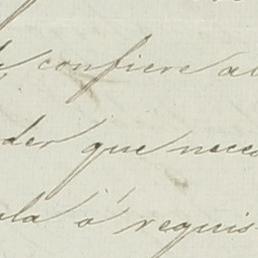 confiere al
der que nece
ula ó requis-